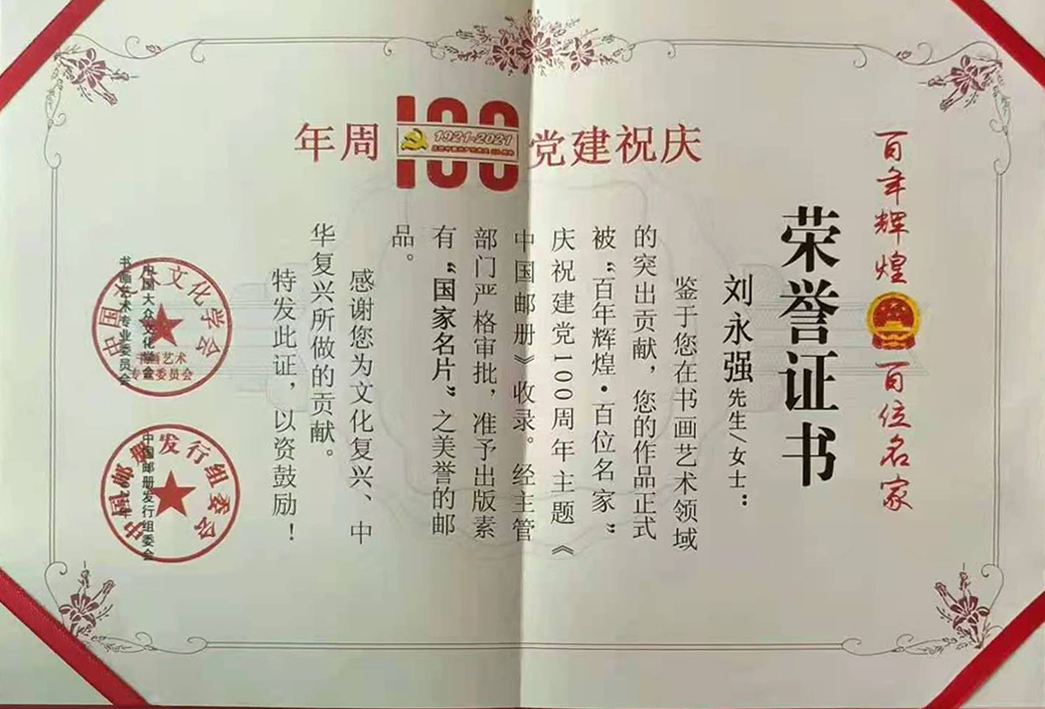 庆祝建党100周年
1921-2021
百年辉煌 百位名家
荣誉证书
刘永强先生/女士：
鉴于您在书画艺术领域
的突出贡献，您的作品正式
被“百年辉煌·百位名家”
庆祝建党100周年主题《
中国邮册》收录。经主管
部门严格审批，准予出版素
有“国家名片”之美誉的邮
品。
感谢您为文化复兴、中
华复兴所做的贡献。
特发此证，以资鼓励！
中国大众文化学会
书画艺术专业委员会
中国大众文化学会
书画艺术
专业委员会
中国邮册发行组委会
中国邮册发行组委会